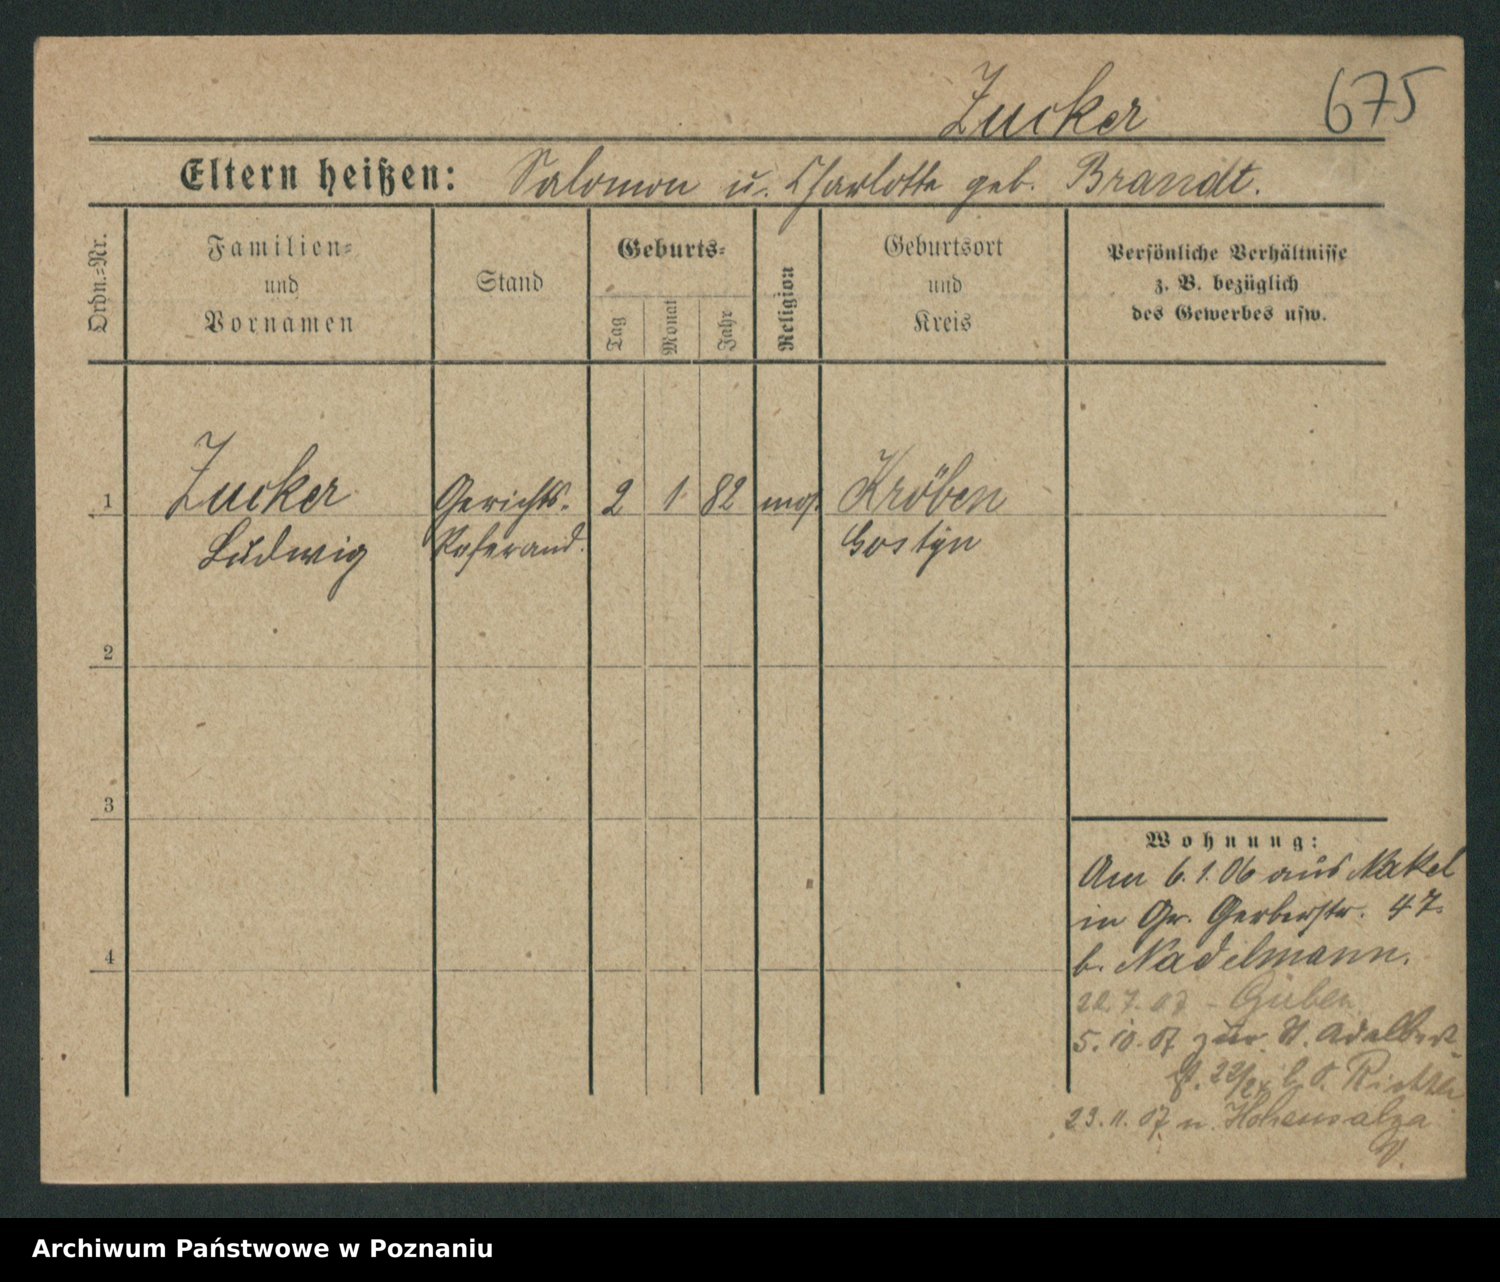 Zucker 675
Eltern heißen: Salomon u. Charlotte geb. Brandt.
Ordn.=Nr.
Familien=
und
Vornamen
Stand
Geburts=
Tag
Monat
Jahr
Religion
Geburtsort
und
Kreis
Persönliche Verhältnisse
z. B. bezüglich
des Gewerbes usw.
1 Zucker Gerichts- 2 1 82 mos. Kröben
Ludwig Referend. Gostyn
2
3
4
Wohnung:
Am 6.1.06 aus Nakel
in Gr. Gerberstr. 47.
b. Nadelmann.
7. 07 - Guben
5.10.07 zur. St. Adalbert
b. Richter
23.11.07 n. Hohensalza
Archiwum Państwowe w Poznaniu